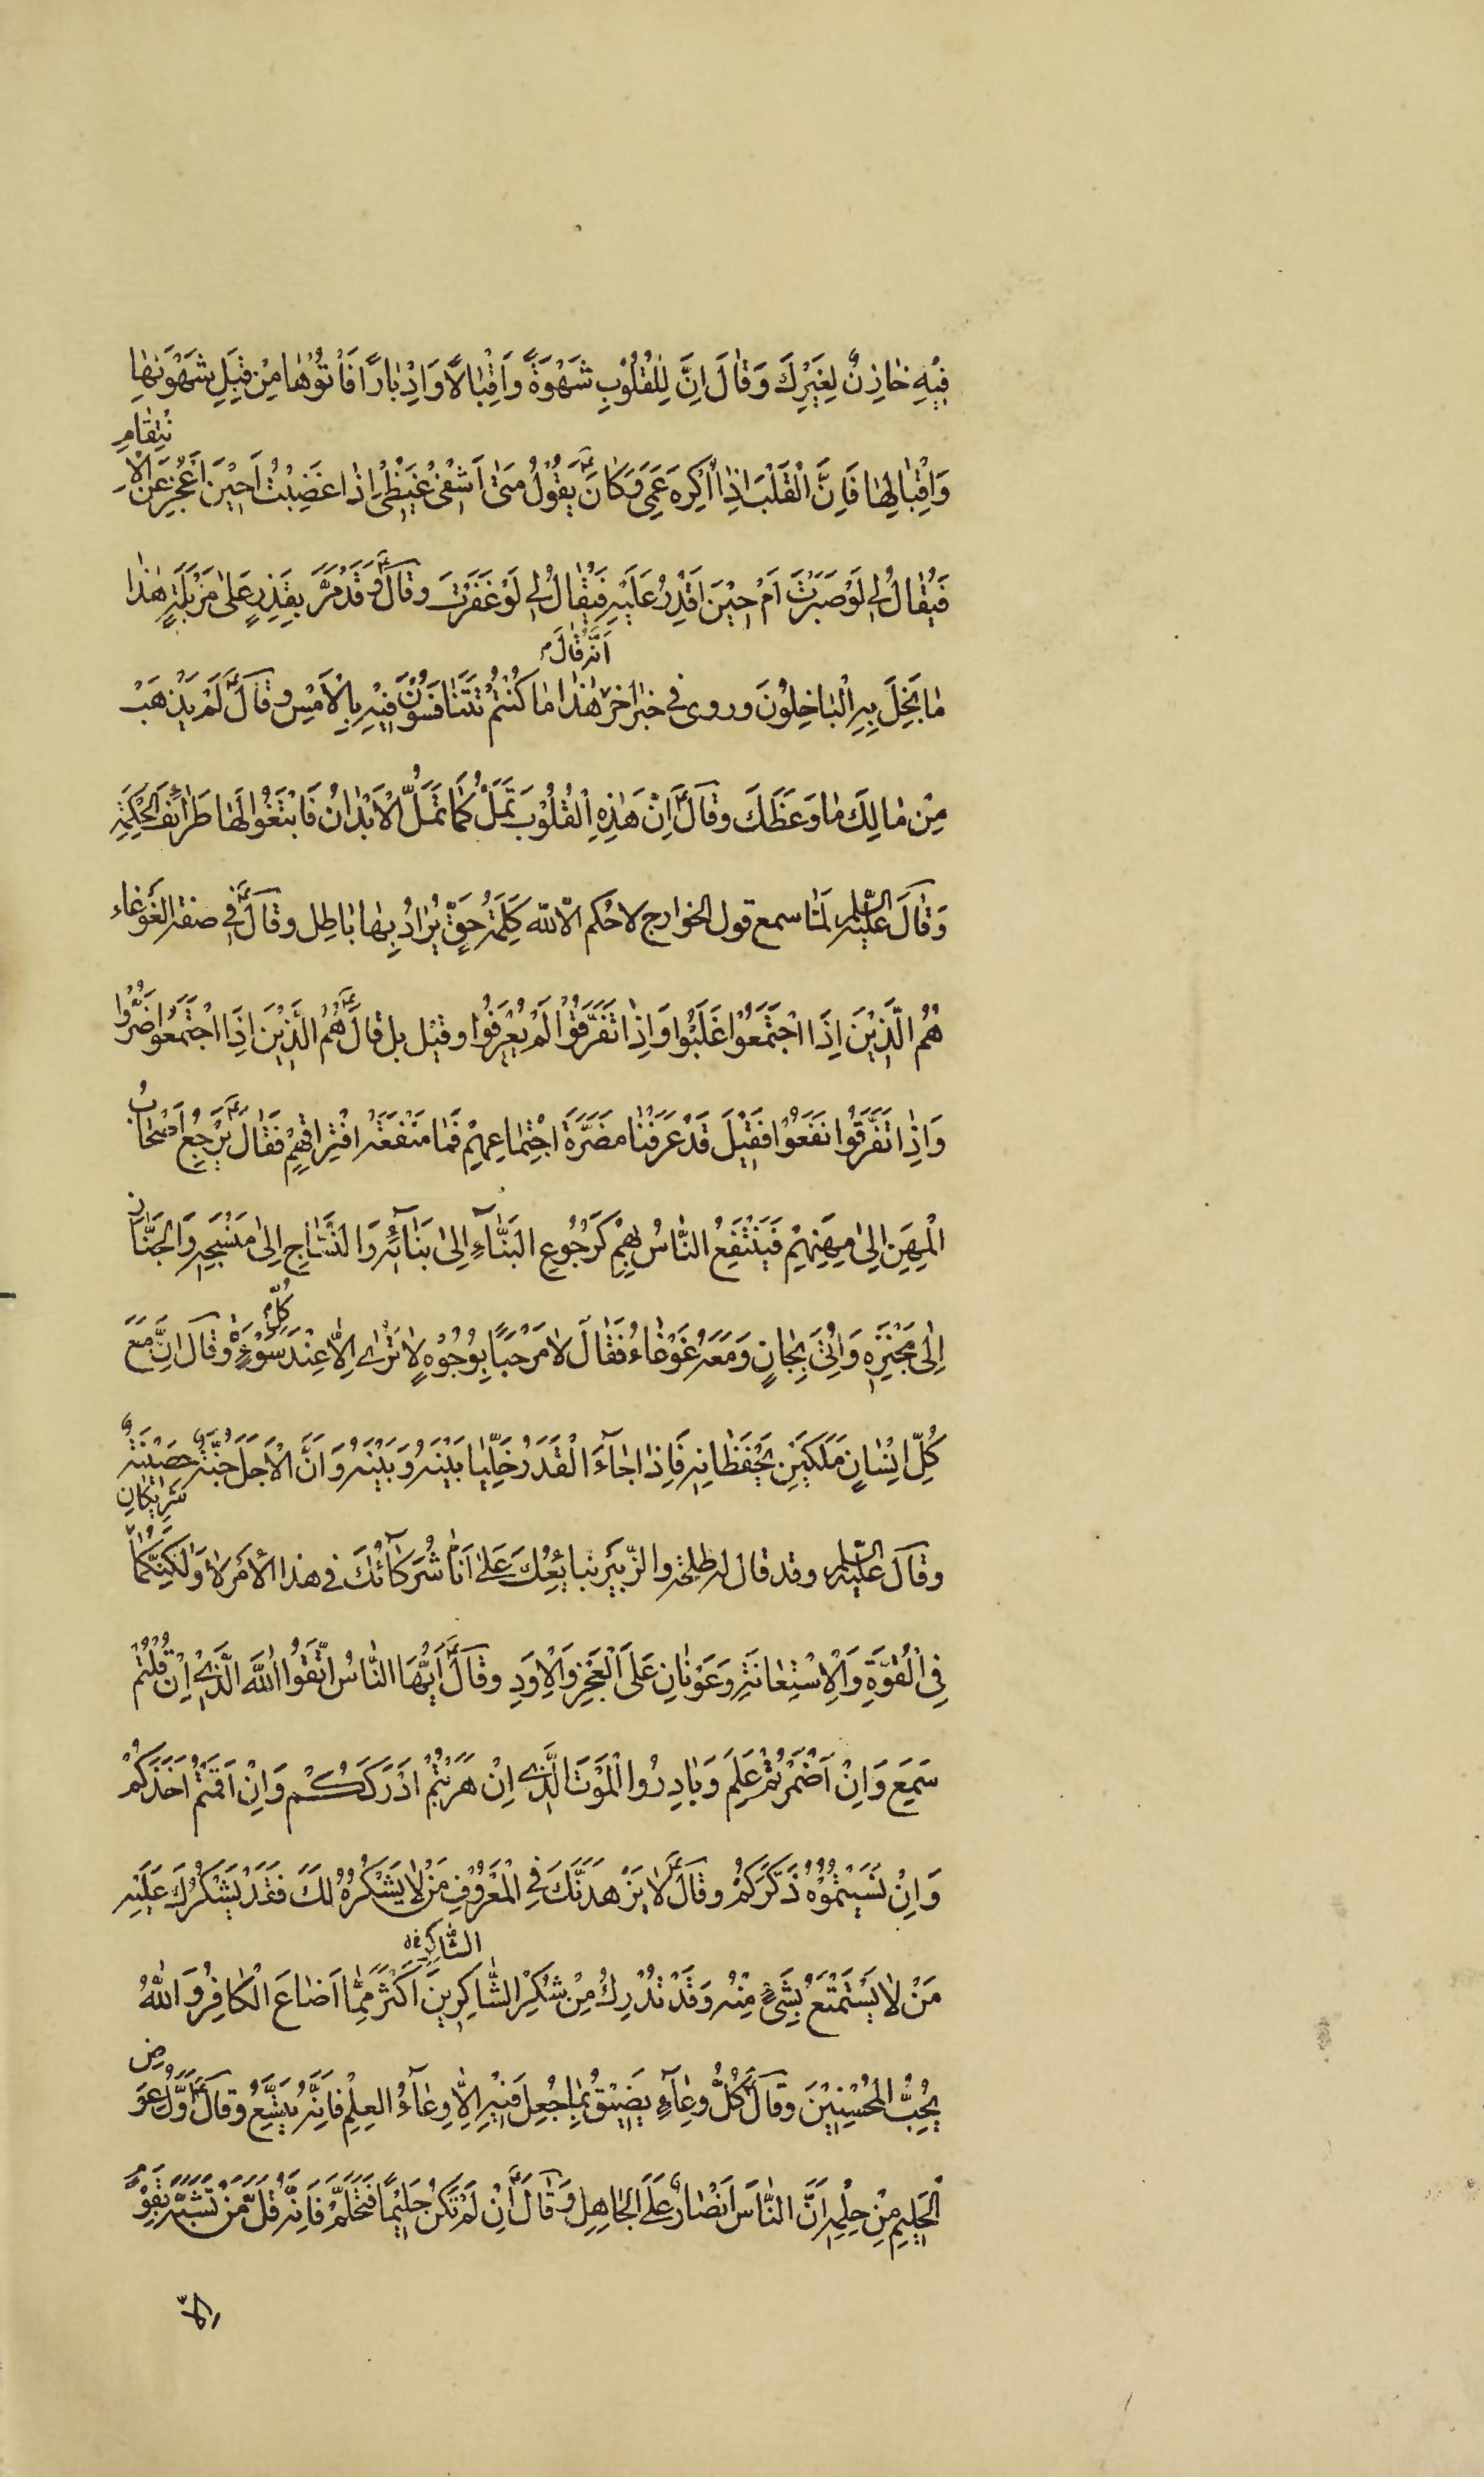 فِيْهِ خٰازِنٌ لِغَيْرِكَ وَقٰالَ اِنَّ لِلْقُلُوْبِ شَهْوَةً وَاِقْبٰالًا وَاِدْبٰارًا فَأْتُوْهٰا مِنْ قِبَلِ شَهْوَتِهٰا
وَاِقْبٰالِهٰا فَاِنَّ الْقَلْبَ اِذٰا اُكْرِهَ عَمِيَ وَكٰانَ ع يَقُوْلُ مَتٰى اَشْفِيْ غَيْظِيْ اِذٰا غَضِبْتُ اَحِيْنَ اَعْجِزُ عَنِ الْاِ
نْتِقٰامِ
فَيُقٰالُ لِي لَوْ صَبَرْتَ اَمْ حِيْنَ اَقْدِرُ عَلَيْهِ فَيُقٰالُ لِي لَوْ غَفَرْتَ وقال ع وَقَدْ مَرَّ بِقَذَرٍ عَلٰى مَزْبَلَةٍ هٰذٰا
مٰا بَخِلَ بِهِ الْبٰاخِلُوْنَ وروى في خبر اخر هٰذٰا مٰا كُنْتُمْ تَتَنٰافَسُوْنَ فِيْهِ بِالْاَمْسِ وقال ع لَمْ يَذْهَبْ
اَنَّهُ قٰالَ
مِنْ مٰالِكَ مٰا وَعَظَكَ وقال ع اِنَّ هٰذِهِ الْقُلُوْبَ تَمَلُّ كَمٰا تَمَلُّ الْاَبْدٰانُ فَابْتَغُوْا لَهٰا طَرٰائِفَ الْحِكْمَةِ
وَقٰالَ عَلَيْهِ السَّلٰام لَمّٰا سمع قول الخوارج لا حكم الا لله كَلِمَةُ حَقٍّ يُرٰادُ بِهٰا بٰاطِل وقال ع في صفة الغَوْغاء
هُمُ الَّذِيْنَ اِذَا اجْتَمَعُوْا غَلَبُوْا وَاِذٰا تَفَرَّقُوْا لَمْ يُعْرَفُوْا وقيل بل قال ع هُمُ الَّذِيْنَ اِذَا اجْتَمَعُوْا ضَرُّوا
وَاِذٰا تَفَرَّقُوْا نَفَعُوْا فَقِيْلَ قَدْ عَرَفْنٰا مَضَرَّةَ اجْتِمٰاعِهِمْ فَمٰا مَنْفَعَةُ افْتِرٰاقِهِمْ فَقٰالَ ع يَرْجِعُ اَصْحٰابُ
الْمِهَنِ اِلٰى مِهَنِهِمْ فَيَنْتَفِعُ النّٰاسُ بِهِمْ كَرُجُوْعِ الْبَنّٰآءِ اِلٰى بَنٰآئِهِ وَالنَّسّٰاجِ اِلٰى مَنْسَجِهِ وَالْخَبّٰازِ
اِلٰى مَخْبَزِهِ وَاُتِيَ بِجٰانٍ وَمَعَهُ غَوْغٰاءُ فَقٰالَ لٰا مَرْحَبًا بِوُجُوْهٍ لٰا تُرٰى اِلّٰا عِنْدَ سَوْءَةٍ وقال اِنَّ مَعَ
كُلِّ
كُلِّ اِنْسٰانٍ مَلَكَيْنِ يَحْفَظٰانِهِ فَاِذٰا جٰآءَ الْقَدَرُ خَلَّيٰا بَيْنَهُ وَبَيْنَهُ وَاَنَّ الْاَجَلَ جُنَّةٌ حَصِيْنَةٌ
وقال عَلَيْهِ السَّلٰام وقد قال له طلحة والزبير نبايعك على انا شركآئك في هذا الأمر لٰا وَلٰكِنَّكُمٰا
شَرِيْكٰانِ
فِي الْقُوَّةِ وَالْاِسْتِعٰانَةِ وَعَوْنٰانِ عَلَى الْعَجْزِ وَالْاَوَدِ وقال ع اَيُّهَا النّٰاسُ اتَّقُوا اللّٰهَ الَّذِيْ اِنْ قُلْتُمْ
سَمِعَ وَاِنْ اَضْمَرْتُمْ عَلِمَ وَبٰادِرُوا الْمَوْتَ الَّذِي اِنْ هَرَبْتُمْ اَدْرَكَكُمْ وَاِنْ اَقَمْتُمْ اَخَذَكُمْ
وَاِنْ نَسِيْتُمُوْهُ ذَكَرَكُمْ وقال ع لٰا يُزَهِّدَنَّكَ فِي الْمَعْرُوْفِ مَنْ لٰا يَشْكُرُهُ لَكَ فَقَدْ يَشْكُرُكَ عَلَيْهِ
مَنْ لٰا يَسْتَمْتِعُ بِشَيْءٍ مِنْهُ وَقَدْ تُدْرِكُ مِنْ شُكْرِ الشّٰاكِرِيْنَ اَكْثَرَ مِمّٰا اَضٰاعَ الْكٰافِرُ وَاللّٰهُ
الشّٰاكِرِ
يُحِبُّ الْمُحْسِنِيْنَ وقال ع كُلُّ وِعٰآءٍ يَضِيْقُ بِمٰا جُعِلَ فِيْهِ اِلّٰا وِعٰآءُ الْعِلْمِ فَاِنَّهُ يَتَّسِعُ وقال ع اَوَّلُ عِوَضِ
الْحَلِيْمِ مِنْ حِلْمِهِ اَنَّ النّٰاسَ اَنْصٰارٌ عَلَى الْجٰاهِلِ وَقٰالَ ع اِنْ لَمْ تَكُنْ حَلِيْمًا فَتَحَلَّمْ فَاِنَّهُ قَلَّ مَنْ تَشَبَّهَ بِقَوْمٍ
اِلّٰا